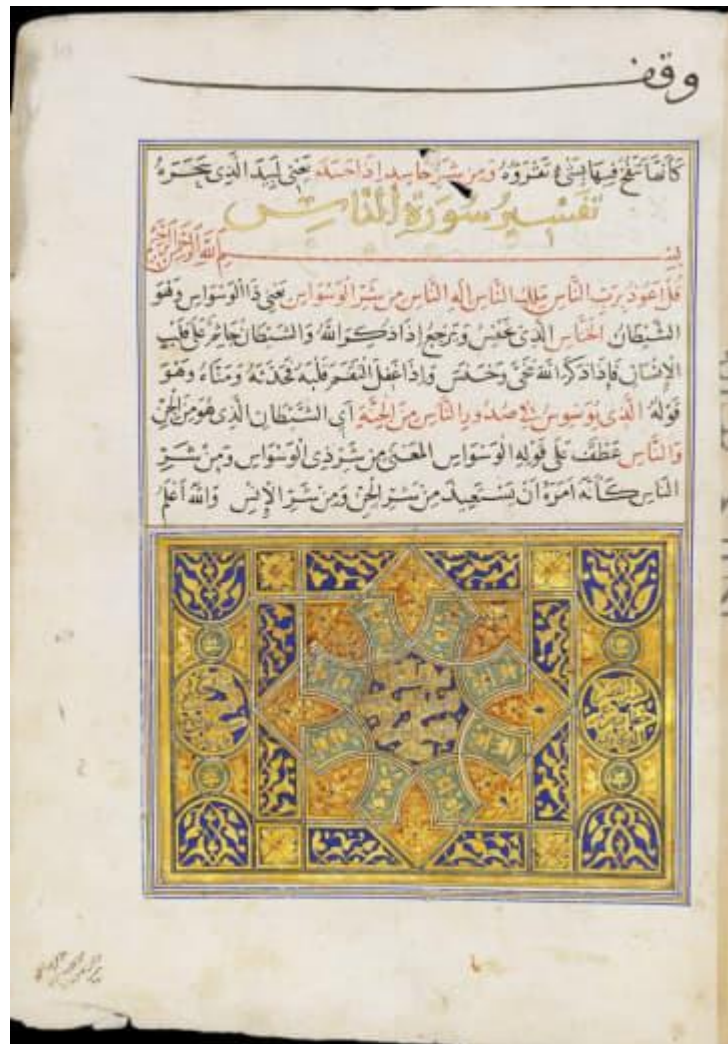 وقف
كأنها تنفخ فيها بشيء تقرؤه ومن شر حاسد إذا حسد يعني لبيد الذي سحره
تفسير سورة الناس
بسم الله الرحمن الرحيم
قل اعوذ برب الناس ملك الناس اله الناس من شر الوسواس يعني ذا الوسواس وهو
الشيطان الخناس الذي يخنس ويرجع إذا ذكر الله والشيطان جاثم على قلب
الإنسان فإذا ذكر الله تنحى وخنس وإذا غفل التقم قلبه فحدثه ومناه وهو
قوله الذي يوسوس في صدور الناس من الجنة أي الشيطان الذي هو من الجن
والناس عطف على قوله الوسواس المعنى من شر ذي الوسواس ومن شر
الناس كأنه امره ان يستعيذ من شر الجن ومن شر الإنس والله أعلم